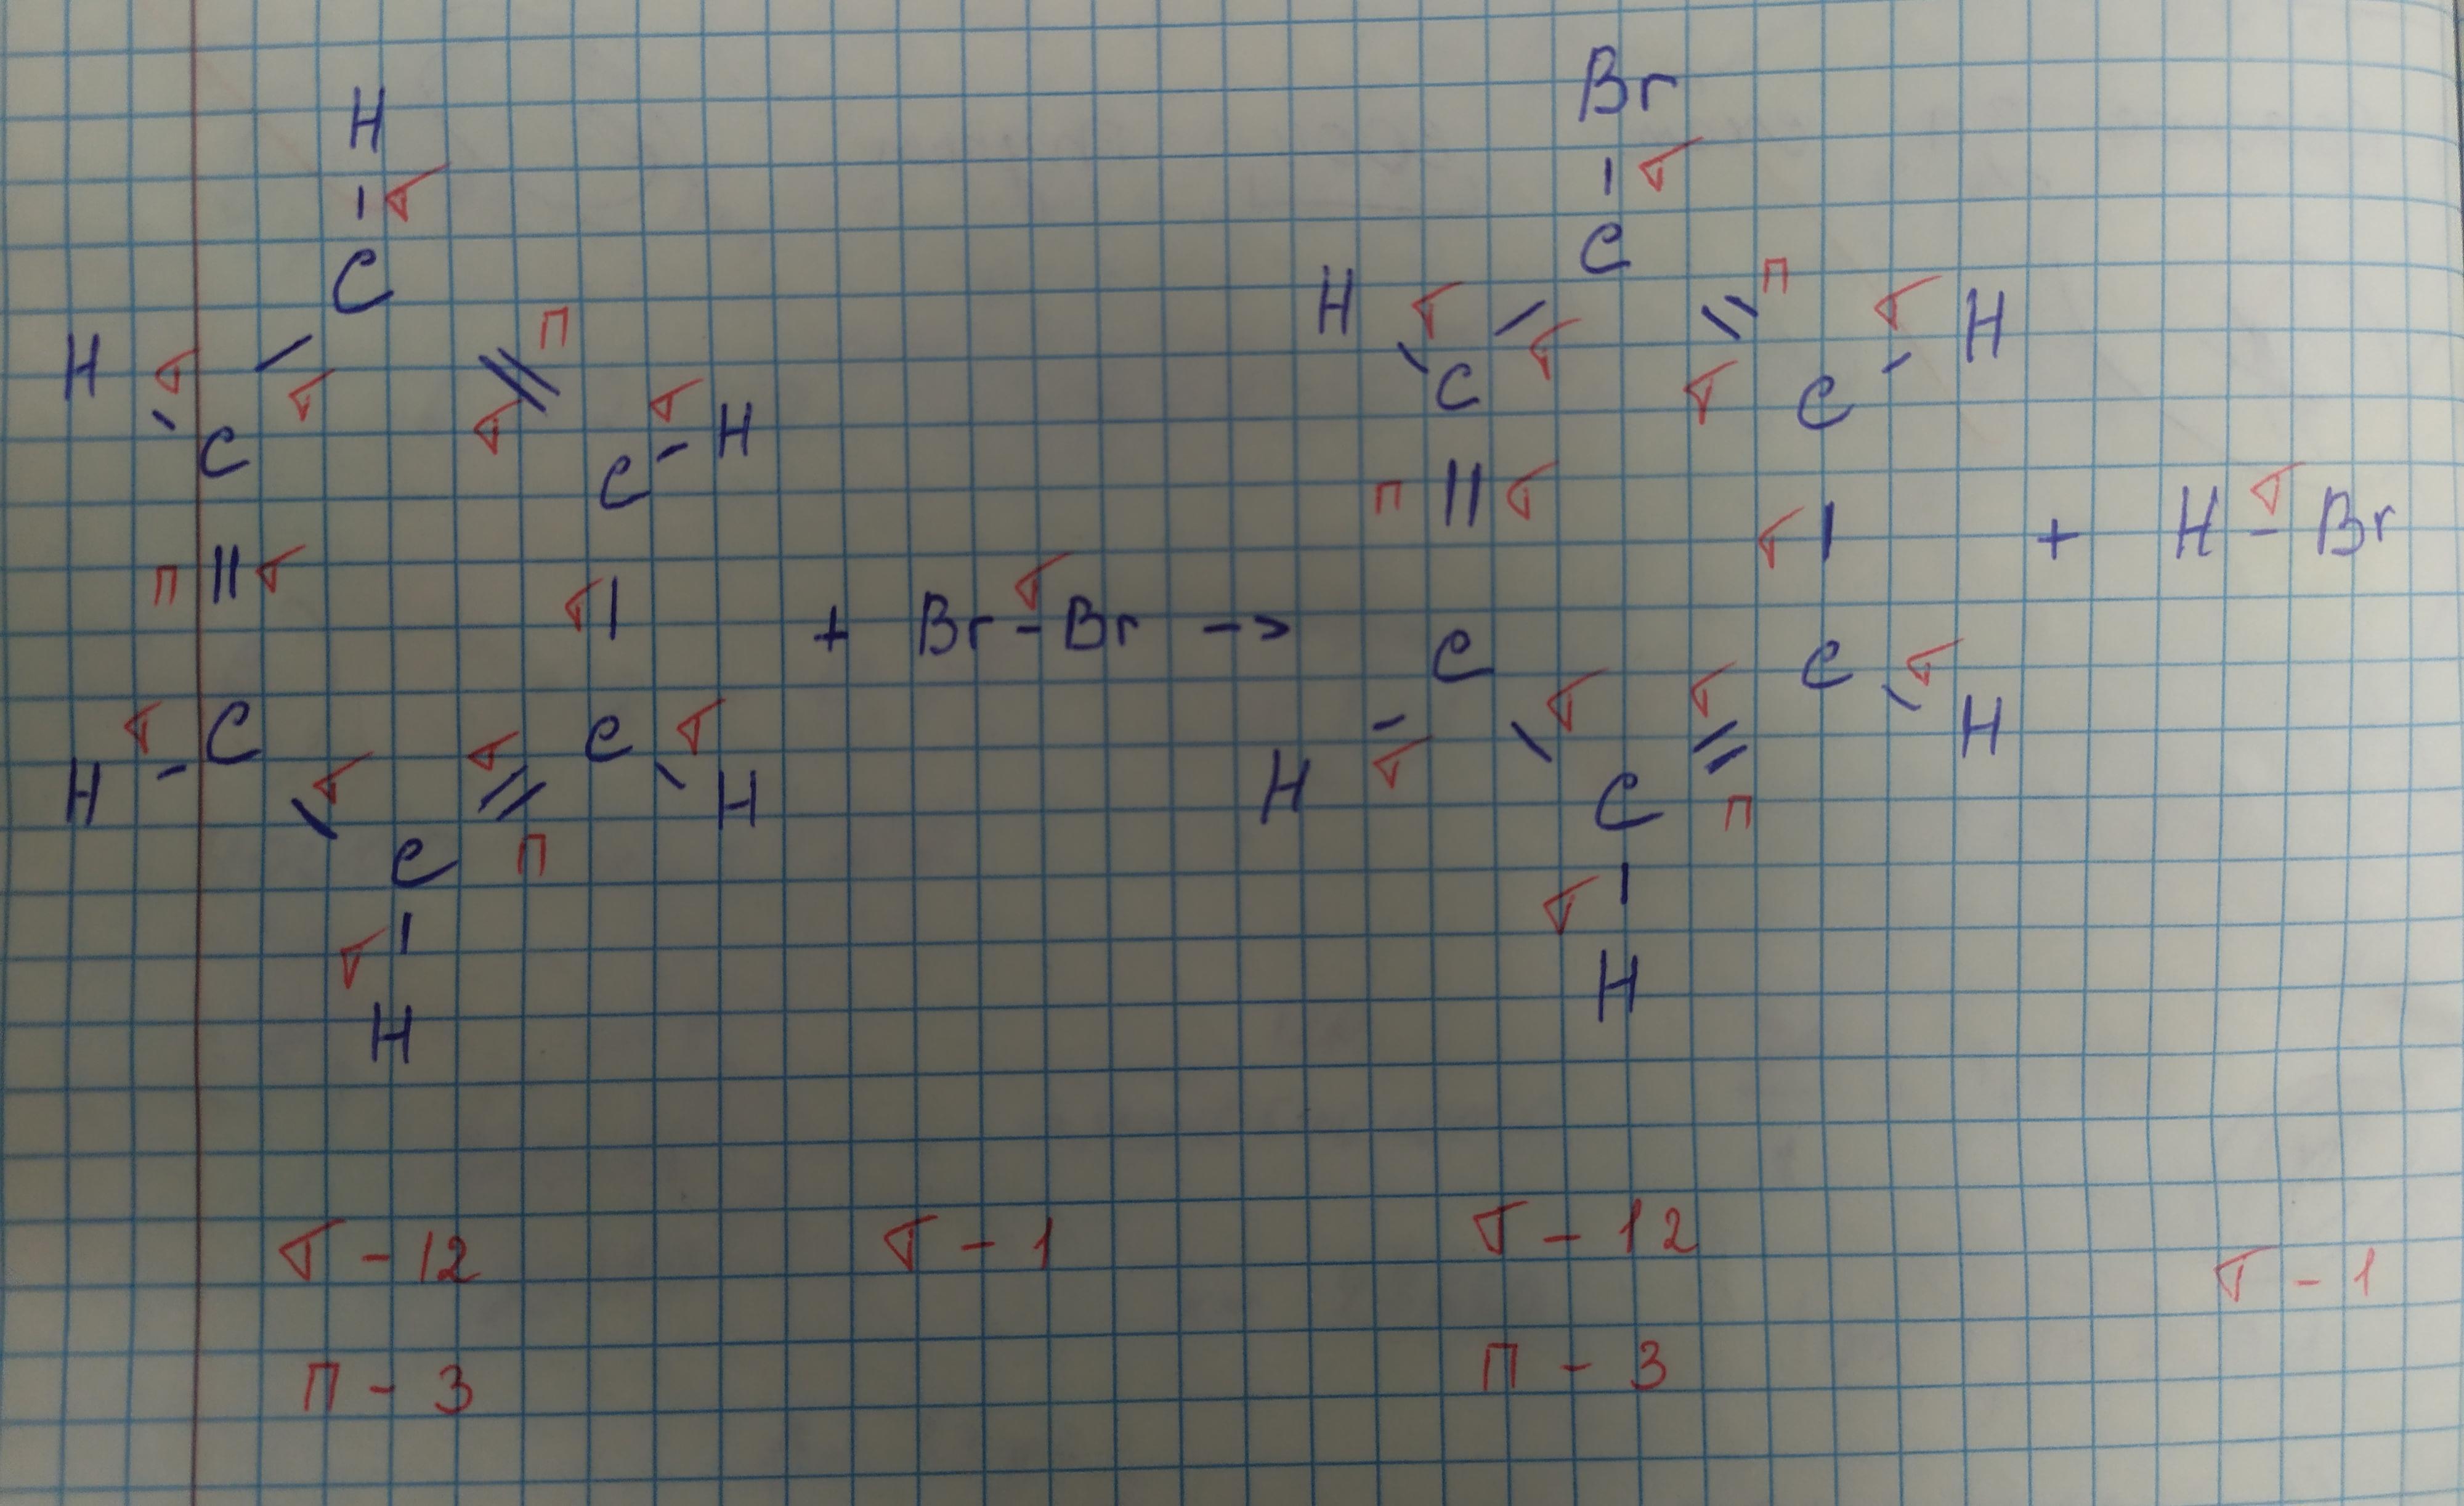 H
- σ
C
H σ / σ \\ п
C C σ - H
п || σ
σ |
H σ - C σ \ σ // п C σ \ H
C
σ |
H
+ Br σ - Br ->
Br
| σ
C
H σ \ / σ \\ п σ / H
C σ C
п || σ
σ |
C C σ
H - σ \ σ σ // п \ H
C
σ |
H
+ H σ - Br
σ - 12
п - 3
σ - 1
σ - 12
п - 3
σ - 1